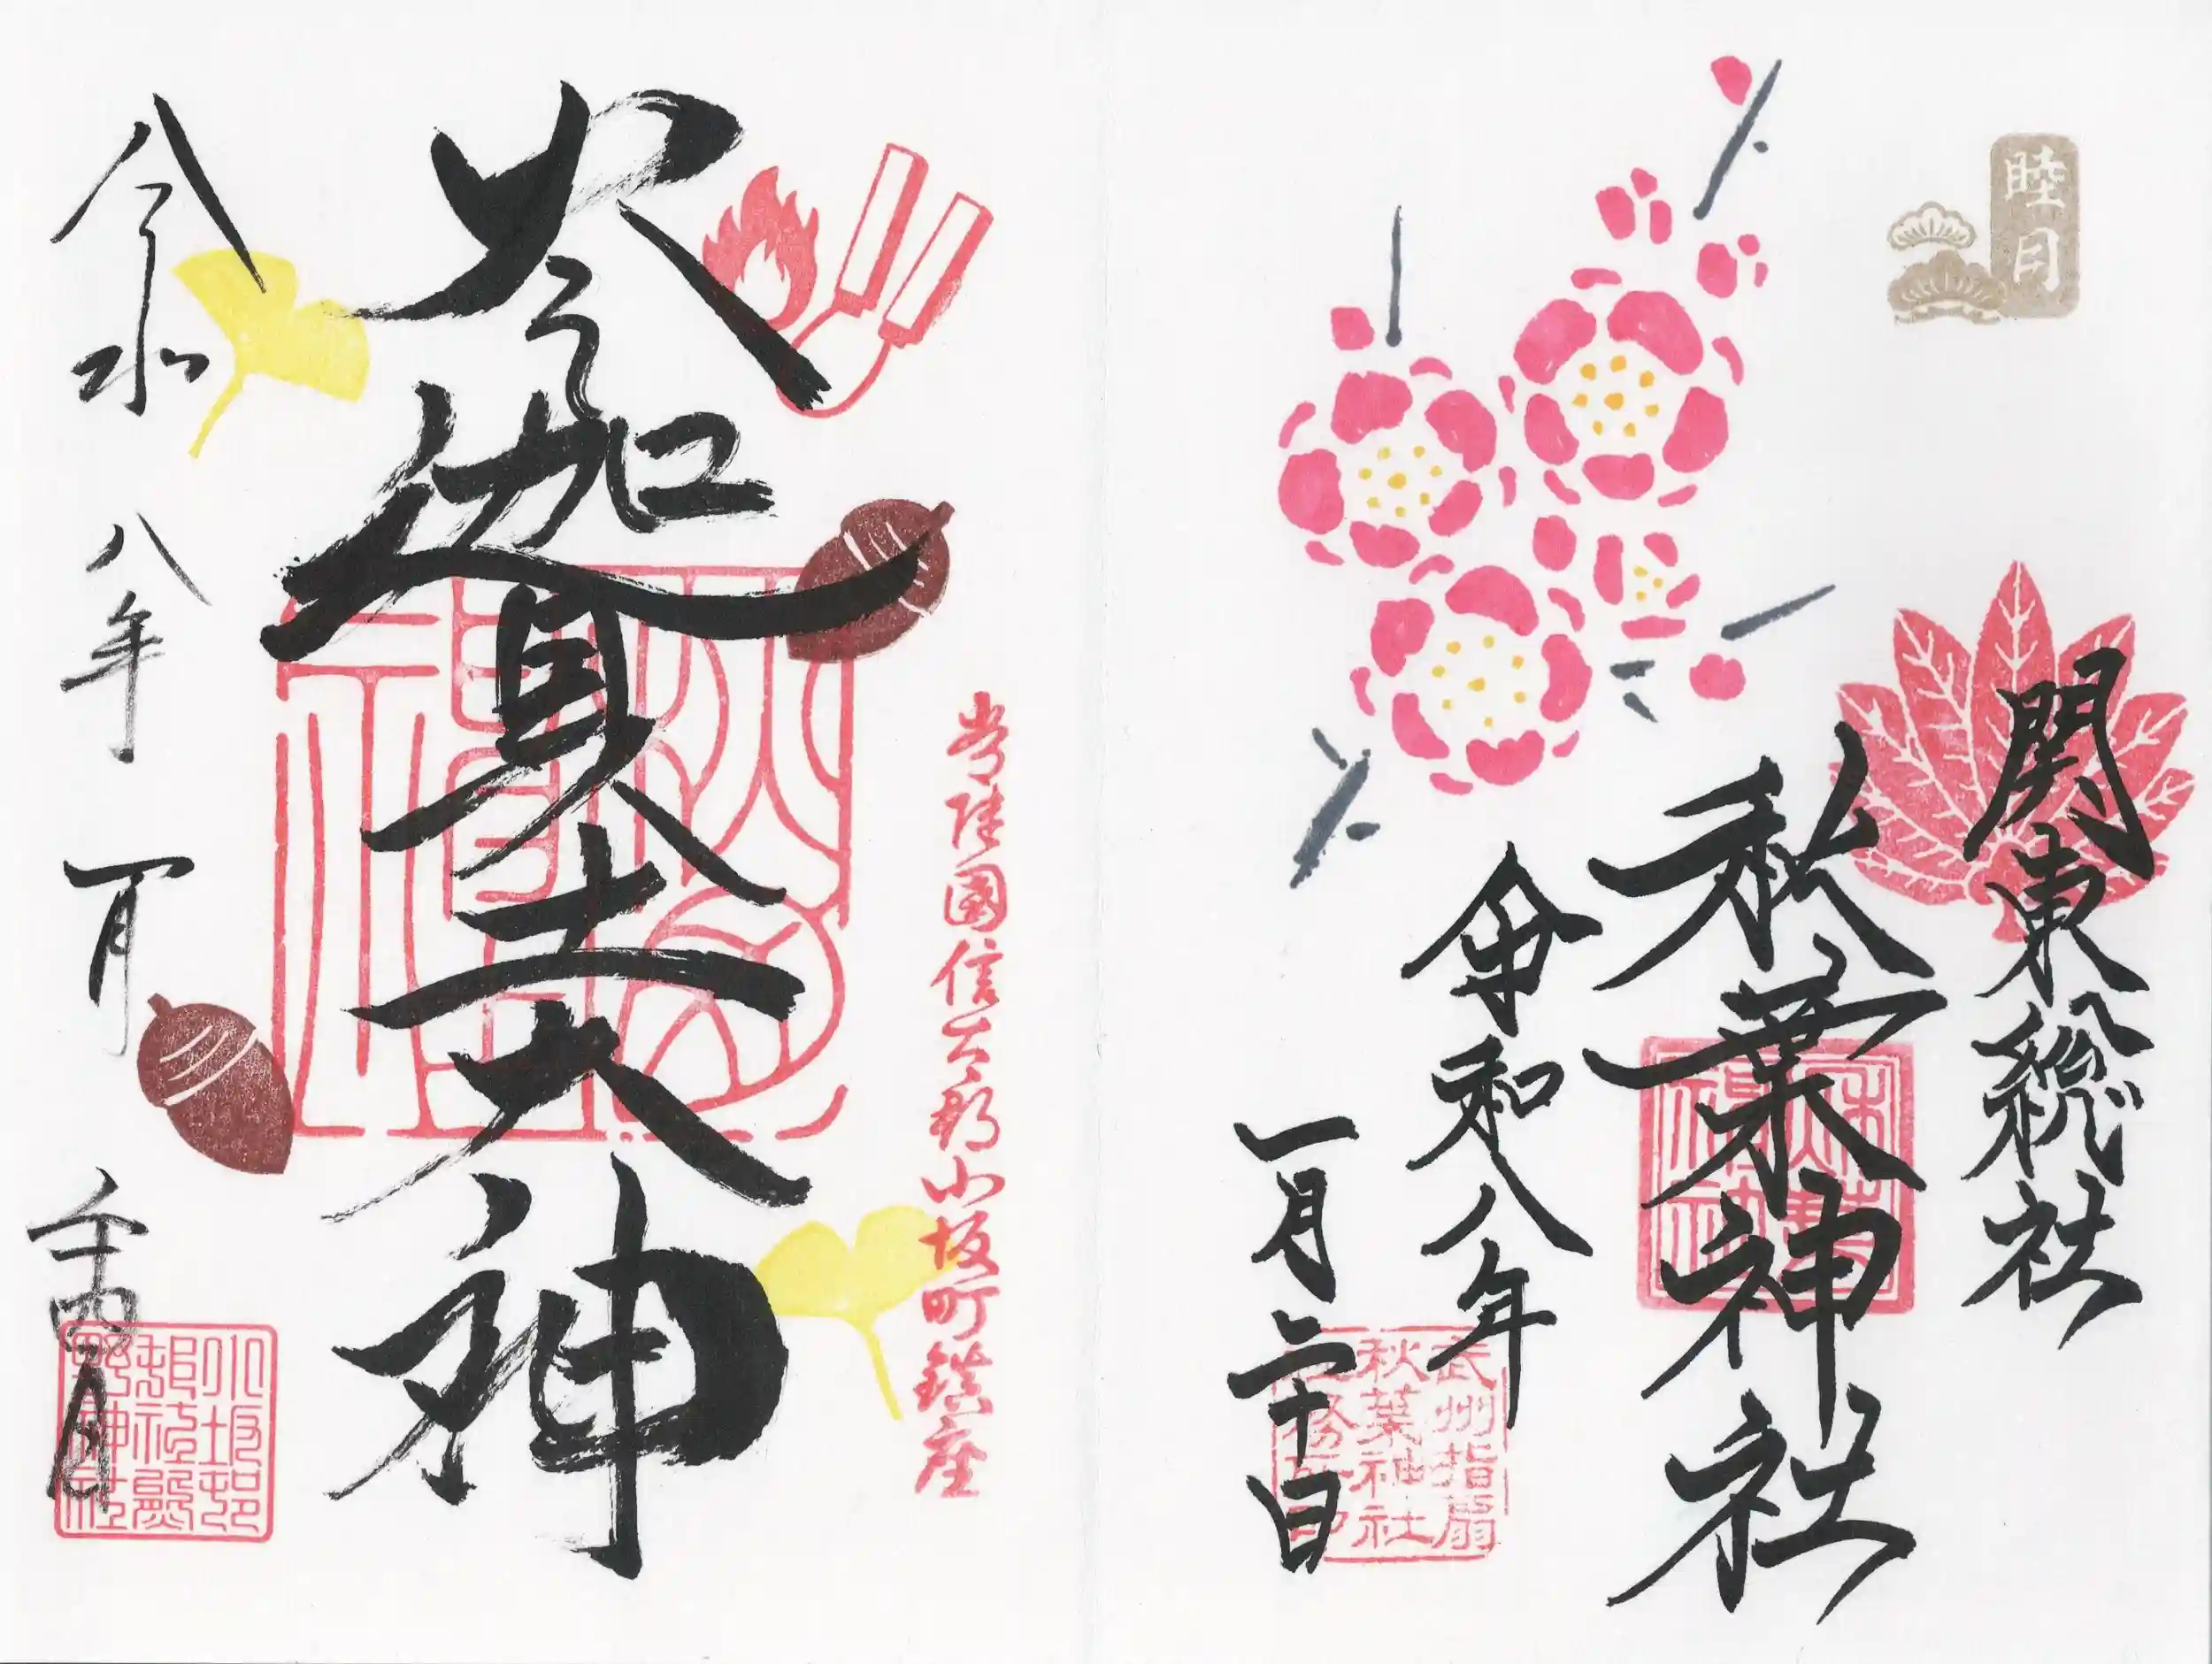 睦月
関東総社
秋葉神社
令和八年
一月二十日
武州指扇
秋葉神社
常陸國信太郡小坂町鎮座
火之迦具土大神
令和八年一月